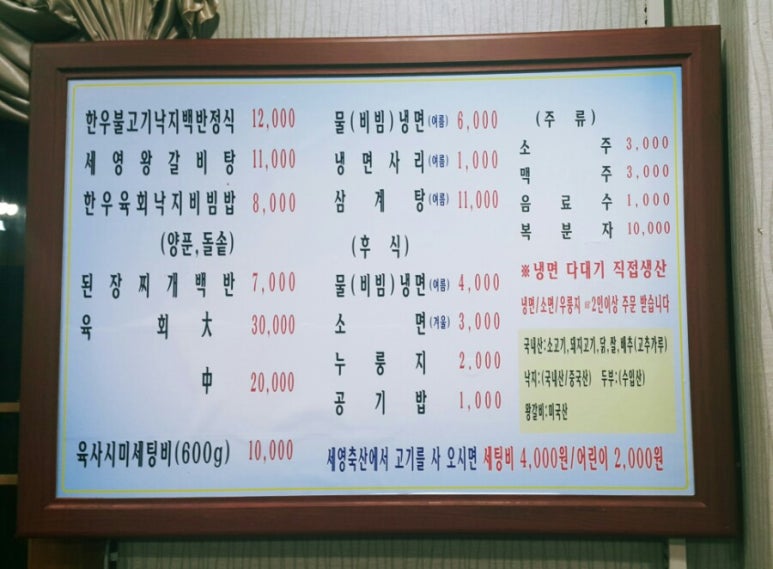 한우불고기낙지백반정식 12,000
세영왕갈비탕 11,000
한우육회낙지비빔밥 8,000
(양푼,돌솥)
된장찌개백반 7,000
육회 大 30,000
中 20,000
육사시미세팅비(600g) 10,000
물(비빔)냉면(여름) 6,000
냉면사리(여름) 1,000
삼계탕(여름) 11,000
(후식)
물(비빔)냉면(여름) 4,000
소면(겨울) 3,000
누룽지 2,000
공기밥 1,000
(주류)
소주 3,000
맥주 3,000
음료수 1,000
복분자 10,000
※냉면 다대기 직접생산
냉면/소면/우룽지 ☞2인이상 주문 받습니다
국내산:소고기,돼지고기,닭,쌀,배추(고추가루)
낙지:(국내산/중국산) 두부:(수입산)
왕갈비:미국산
세영축산에서 고기를 사 오시면 세팅비 4,000원/어린이 2,000원